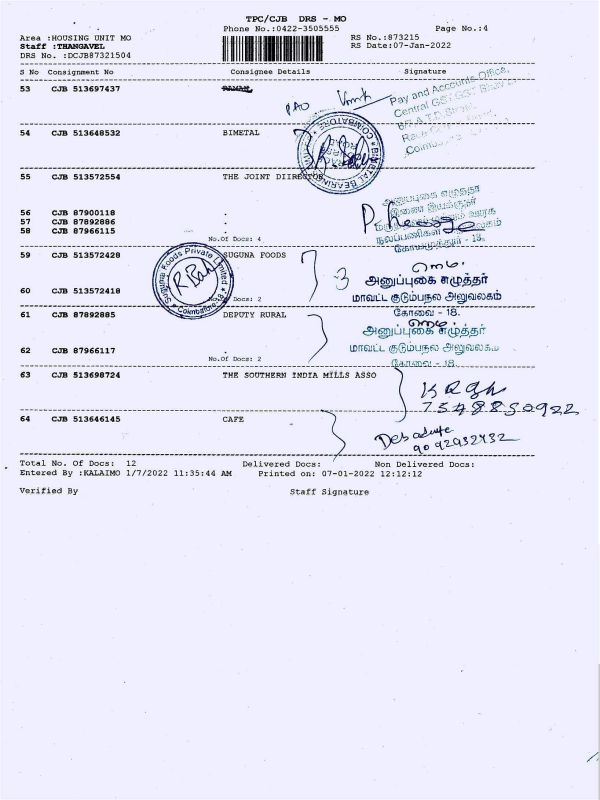 TPC/CJB DRS - MO
Phone No.:0422-3505555 Page No.:4
Area :HOUSING UNIT MO RS No.:873215
Staff :THANGAVEL RS Date:07-Jan-2022
DRS No. :DCJB87321504
S No Consignment No Consignee Details Signature
53 CJB 513697437
PAO
Pay and Accounts Office,
Central GST
54 CJB 513648532 BIMETAL
BIMETAL BEARING
COIMBATORE
55 CJB 513572554 THE JOINT DIIRECTOR
அனுப்புகை எழுத்தர்
56 CJB 87900118 .
57 CJB 87892886 .
58 CJB 87966115 .
No.Of Docs: 4
59 CJB 513572428 SUGUNA FOODS
Suguna Foods Private Limited
Coimbatore-18
3
அனுப்புகை எழுத்தர்
60 CJB 513572418 .
No.Of Docs: 2
மாவட்ட குடும்பநல அலுவலகம்
கோவை - 18.
61 CJB 87892885 DEPUTY RURAL
அனுப்புகை எழுத்தர்
மாவட்ட குடும்பநல அலுவலகம்
62 CJB 87966117 .
No.Of Docs: 2
கோவை - 18.
63 CJB 513698724 THE SOUTHERN INDIA MILLS ASSO
7548850922
64 CJB 513646145 CAFE
9092932732
Total No. Of Docs: 12 Delivered Docs: Non Delivered Docs:
Entered By :KALAIMO 1/7/2022 11:35:44 AM Printed on: 07-01-2022 12:12:12
Verified By Staff Signature